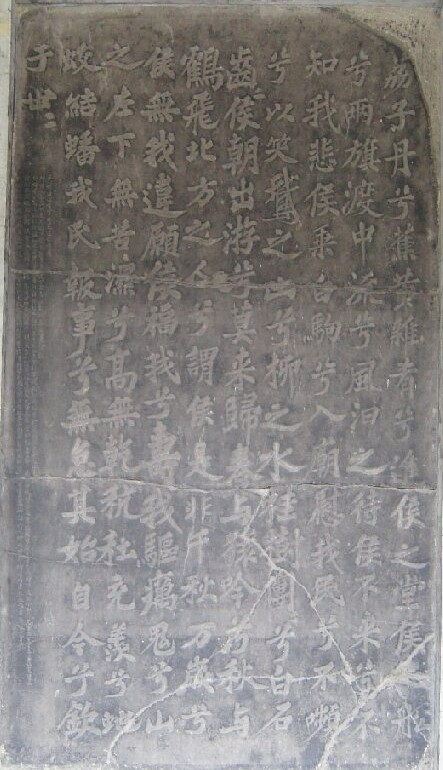 荔子丹兮蕉黄雜肴兮進侯之堂侯之船
兮兩旗渡中流兮風汩之待侯不来兮不
知我悲侯乘白駒兮入廟慰我民兮不嚬
兮以笑鵝之山兮柳之水桂樹團〻兮白石
齒〻侯朝出游兮莫来歸春與猨吟兮秋與
鶴飛北方之人兮謂侯是非千秋万歲兮
侯無我違願侯福我兮壽我驅癘鬼兮山
之左下無苦濕兮高無乾秔稌充羨兮蛇
蛟結蟠我民報事兮無怠其始自今兮欽
于世〻